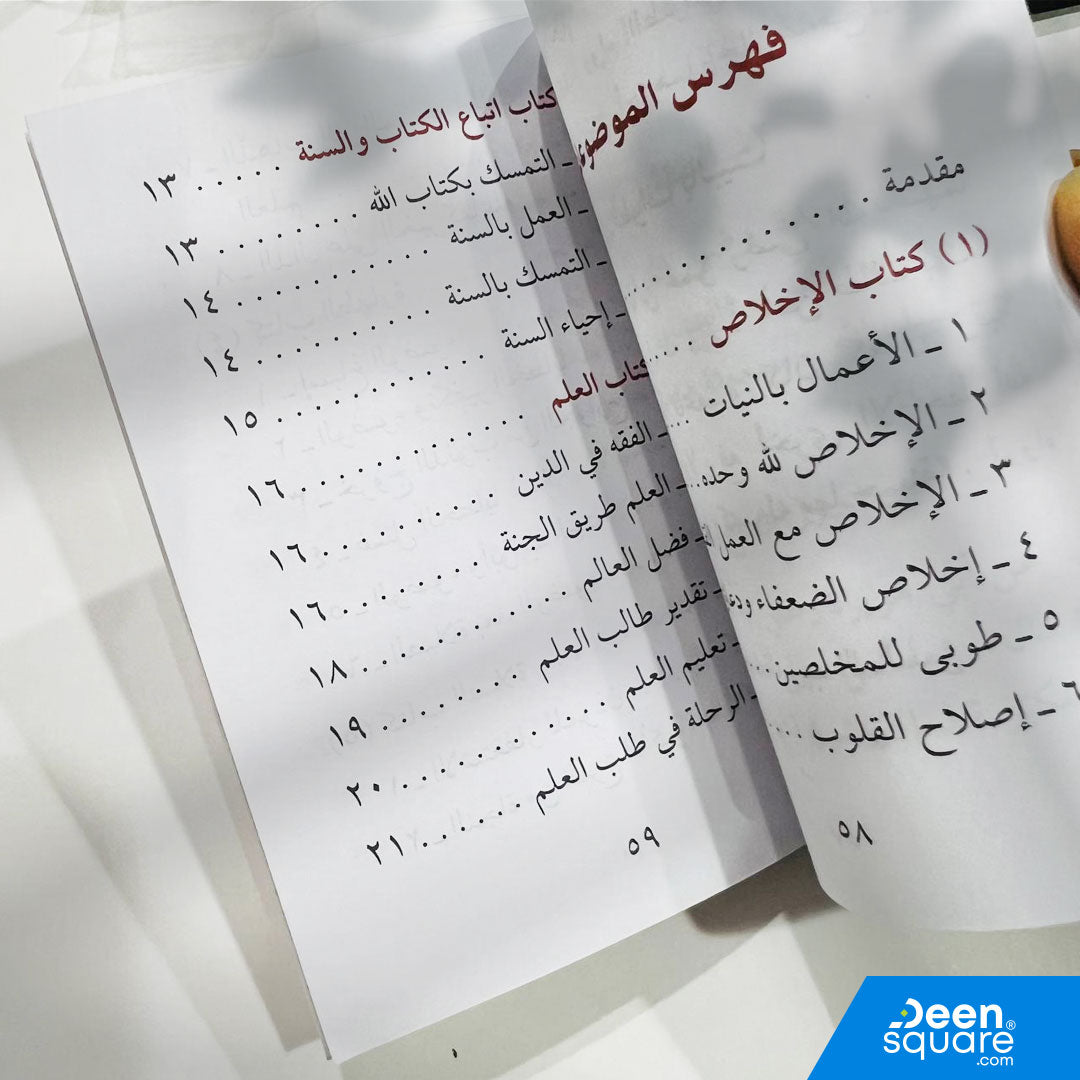 فهرس
مقدمة . . . . . . . . . . . .
(١) كتاب الإخلاص . . . . .
١ ـ الأعمال بالنيات . . .
٢ ـ الإخلاص لله وحده . .
٣ ـ الإخلاص مع العمل
٤ ـ إخلاص الضعفاء
٥ ـ طوبى للمخلصين . . .
٦ ـ إصلاح القلوب . . . .
٥٨
كتاب اتباع الكتاب والسنة . . . . . ١٣
ـ التمسك بكتاب الله . . . . . . . ١٣
ـ العمل بالسنة . . . . . . . . . . . ١٤
ـ التمسك بالسنة . . . . . . . . . . ١٤
ـ إحياء السنة . . . . . . . . . . . ١٥
كتاب العلم . . . . . . . . . . . . ١٦
ـ الفقه في الدين . . . . . . . . . . ١٦
ـ العلم طريق الجنة . . . . . . . . ١٦
ـ فضل العالم . . . . . . . . . . . . ١٨
ـ تقدير طالب العلم . . . . . . . . ١٩
ـ تعليم العلم . . . . . . . . . . . . ٢٠
ـ الرحلة في طلب العلم . . . . . . ٢١
٥٩
Deen
square®
.com